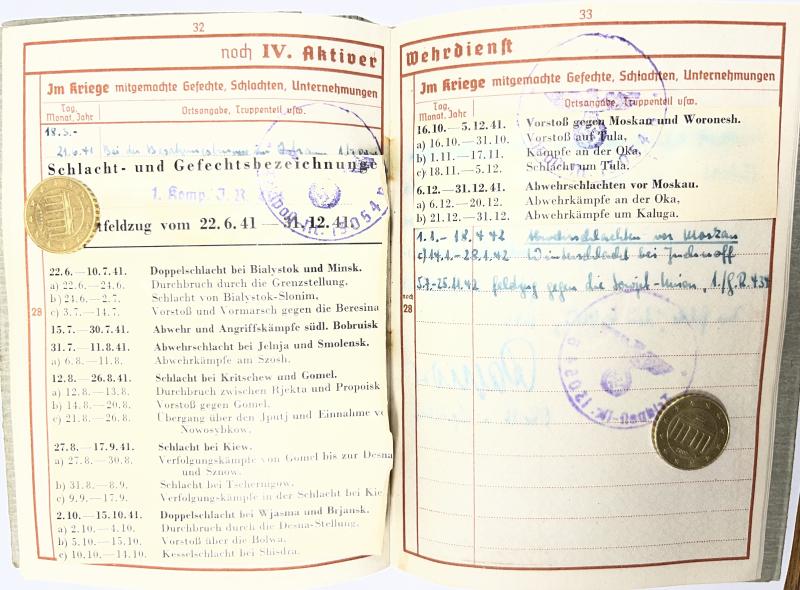 32
noch IV. Aktiver
Im Kriege mitgemachte Gefechte, Schlachten, Unternehmungen
Tag, Monat, Jahr
Ortsangabe, Truppenteil usw.
18.3.-
21.6.41 Bei der
Schlacht- und Gefechtsbezeichnunge
1. Komp. J. R.
feldzug vom 22.6.41—31.12.41
22.6.—10.7.41. Doppelschlacht bei Bialystok und Minsk.
a) 22.6.—24.6. Durchbruch durch die Grenzstellung,
b) 24.6.—2.7. Schlacht von Bialystok-Slonim,
c) 3.7.—14.7. Vorstoß und Vormarsch gegen die Beresina
28
15.7.—30.7.41. Abwehr und Angriffskämpfe südl. Bobruisk
31.7.—11.8.41. Abwehrschlacht bei Jelnja und Smolensk.
a) 6.8.—11.8. Abwehrkämpfe am Szosh.
12.8.—26.8.41. Schlacht bei Kritschew und Gomel.
a) 12.8.—13.8. Durchbruch zwischen Rjekta und Propoisk
b) 14.8.—20.8. Vorstoß gegen Gomel.
c) 21.8.—26.8. Übergang über den Jputj und Einnahme vo
Nowosybkow.
27.8.—17.9.41. Schlacht bei Kiew.
a) 27.8.—30.8. Verfolgungskämpfe von Gomel bis zur Desna
und Sznow.
b) 31.8.—8.9. Schlacht bei Tschernigow.
c) 9.9.—17.9. Verfolgungskämpfe in der Schlacht bei Kie
2.10.—15.10.41. Doppelschlacht bei Wjasma und Brjansk.
a) 2.10.—4.10. Durchbruch durch die Desna-Stellung.
b) 5.10.—15.10. Vorstoß über die Bolwa.
c) 10.10.—14.10. Kesselschlacht bei Shisdra.
33
Wehrdienst
Im Kriege mitgemachte Gefechte, Schlachten, Unternehmungen
Tag, Monat, Jahr
Ortsangabe, Truppenteil usw.
16.10.—5.12.41. Vorstoß gegen Moskau und Woronesh.
a) 16.10.—31.10. Vorstoß auf Tula,
b) 1.11.—17.11. Kämpfe an der Oka,
c) 18.11.—5.12. Schlacht um Tula.
6.12.—31.12.41. Abwehrschlachten vor Moskau.
a) 6.12.—20.12. Abwehrkämpfe an der Oka,
b) 21.12.—31.12. Abwehrkämpfe um Kaluga.
1.1.- 18.4.42 Abwehrschlachten vor Moskau
c) 14.1.-28.1.42 Winterschlacht bei Juchnoff
5.7.-25.11.42 Feldzug gegen die Sowjet-Union, 1./G.R. 434
noch
28
12054